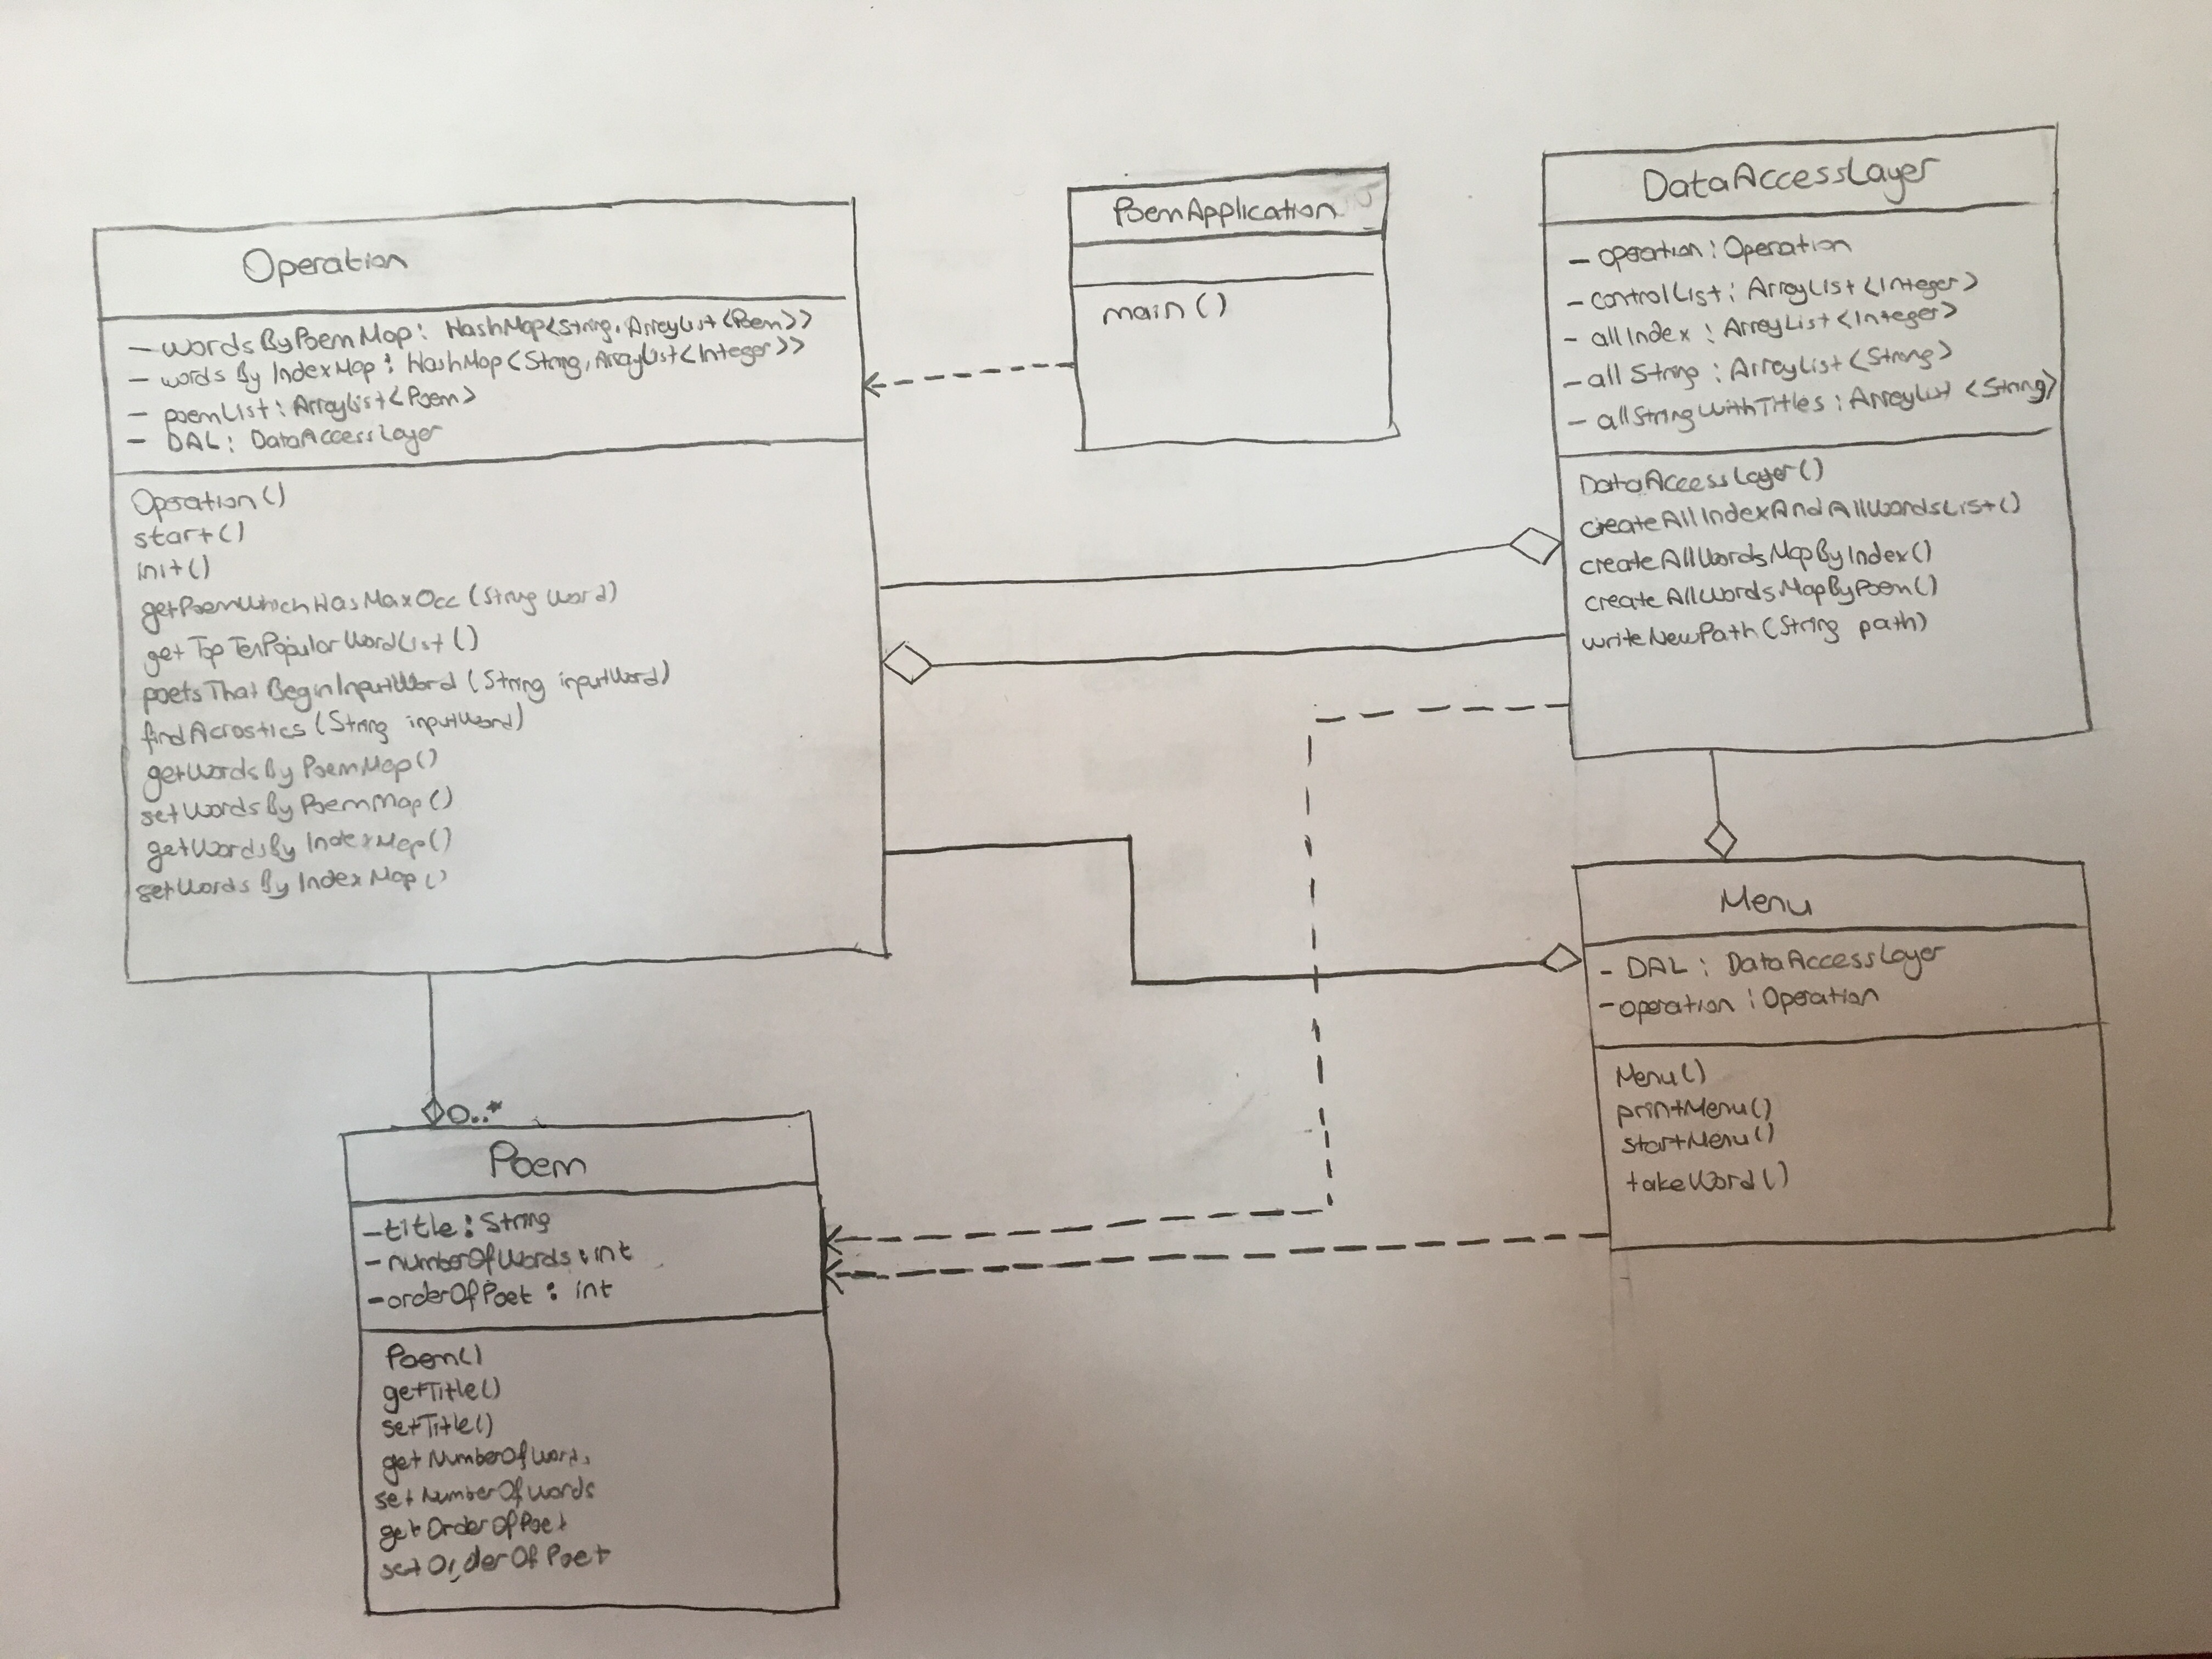 Operation
- wordsByPoemMap: HashMap<String, ArrayList<Poem>>
- words By IndexMap: HashMap<String, ArrayList<Integer>>
- poemList: ArrayList<Poem>
- DAL: DataAccessLayer
Operation()
start()
init()
getPoemWhichHasMaxOcc (String word)
getTopTenPopularWordList()
poetsThatBeginInputWord (String inputWord)
findAcrostics (String inputWord)
getWordsByPoemMap()
setWordsByPoemMap()
getWordsByIndexMap()
setWordsByIndexMap()
PoemApplication
main()
DataAccessLayer
- operation: Operation
- controlList: ArrayList<Integer>
- allIndex: ArrayList<Integer>
- allString: ArrayList<String>
- allStringWithTitles: ArrayList<String>
DataAccessLayer()
createAllIndexAndAllWordsList()
createAllWordsMapByIndex()
createAllWordsMapByPoem()
writeNewPath (String path)
Menu
- DAL: DataAccessLayer
- operation: Operation
Menu()
printMenu()
startMenu()
takeWord()
0..*
Poem
- title: String
- numberOfWords: int
- orderOfPoet: int
Poem()
getTitle()
setTitle()
getNumberOfWords
setNumberOfWords
getOrderOfPoet
setOrderOfPoet